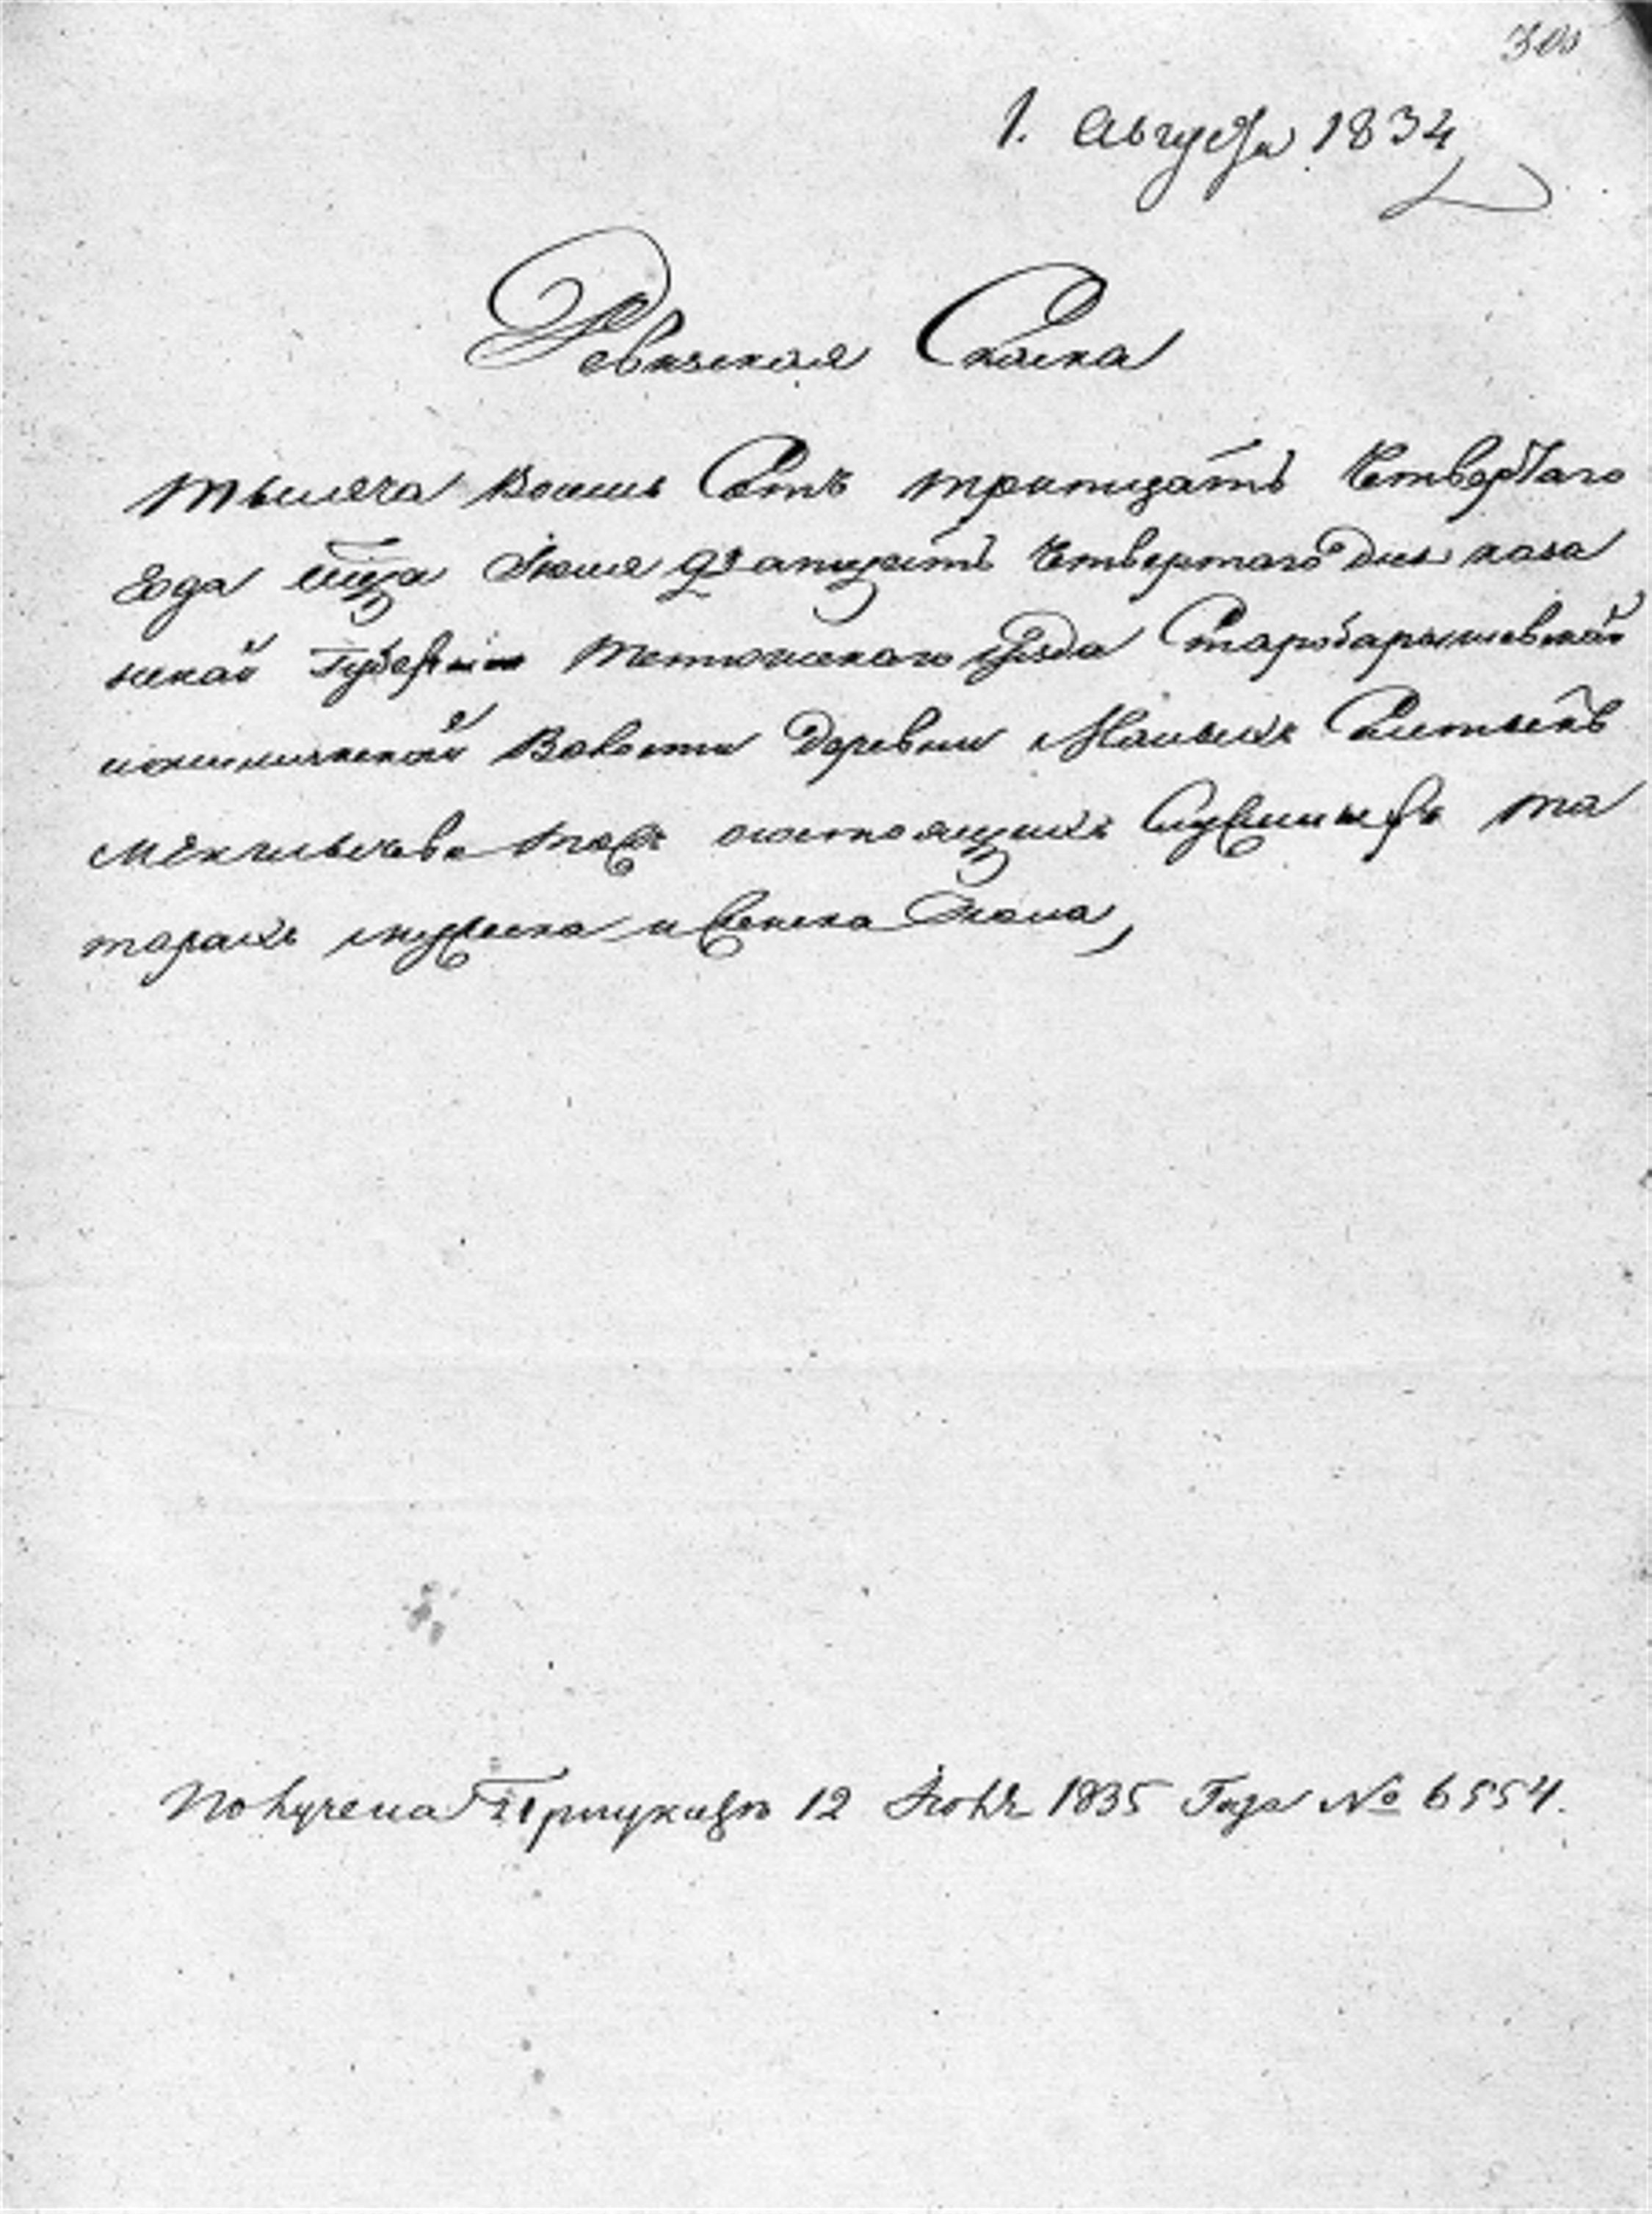 1. Августа 1834
Ревизская Сказка
тысяча восемь Сотъ тритцать Четвертаго
года мца Июля дватцать Четвертаго дня каза
нской губернии тетюшскаго уезда Старобарышевской
Волости деревни Малыхъ
состоящихъ служилыхъ та
тарахъ мужеска и женска пола,
Получена 12 1835 Года № 6554.